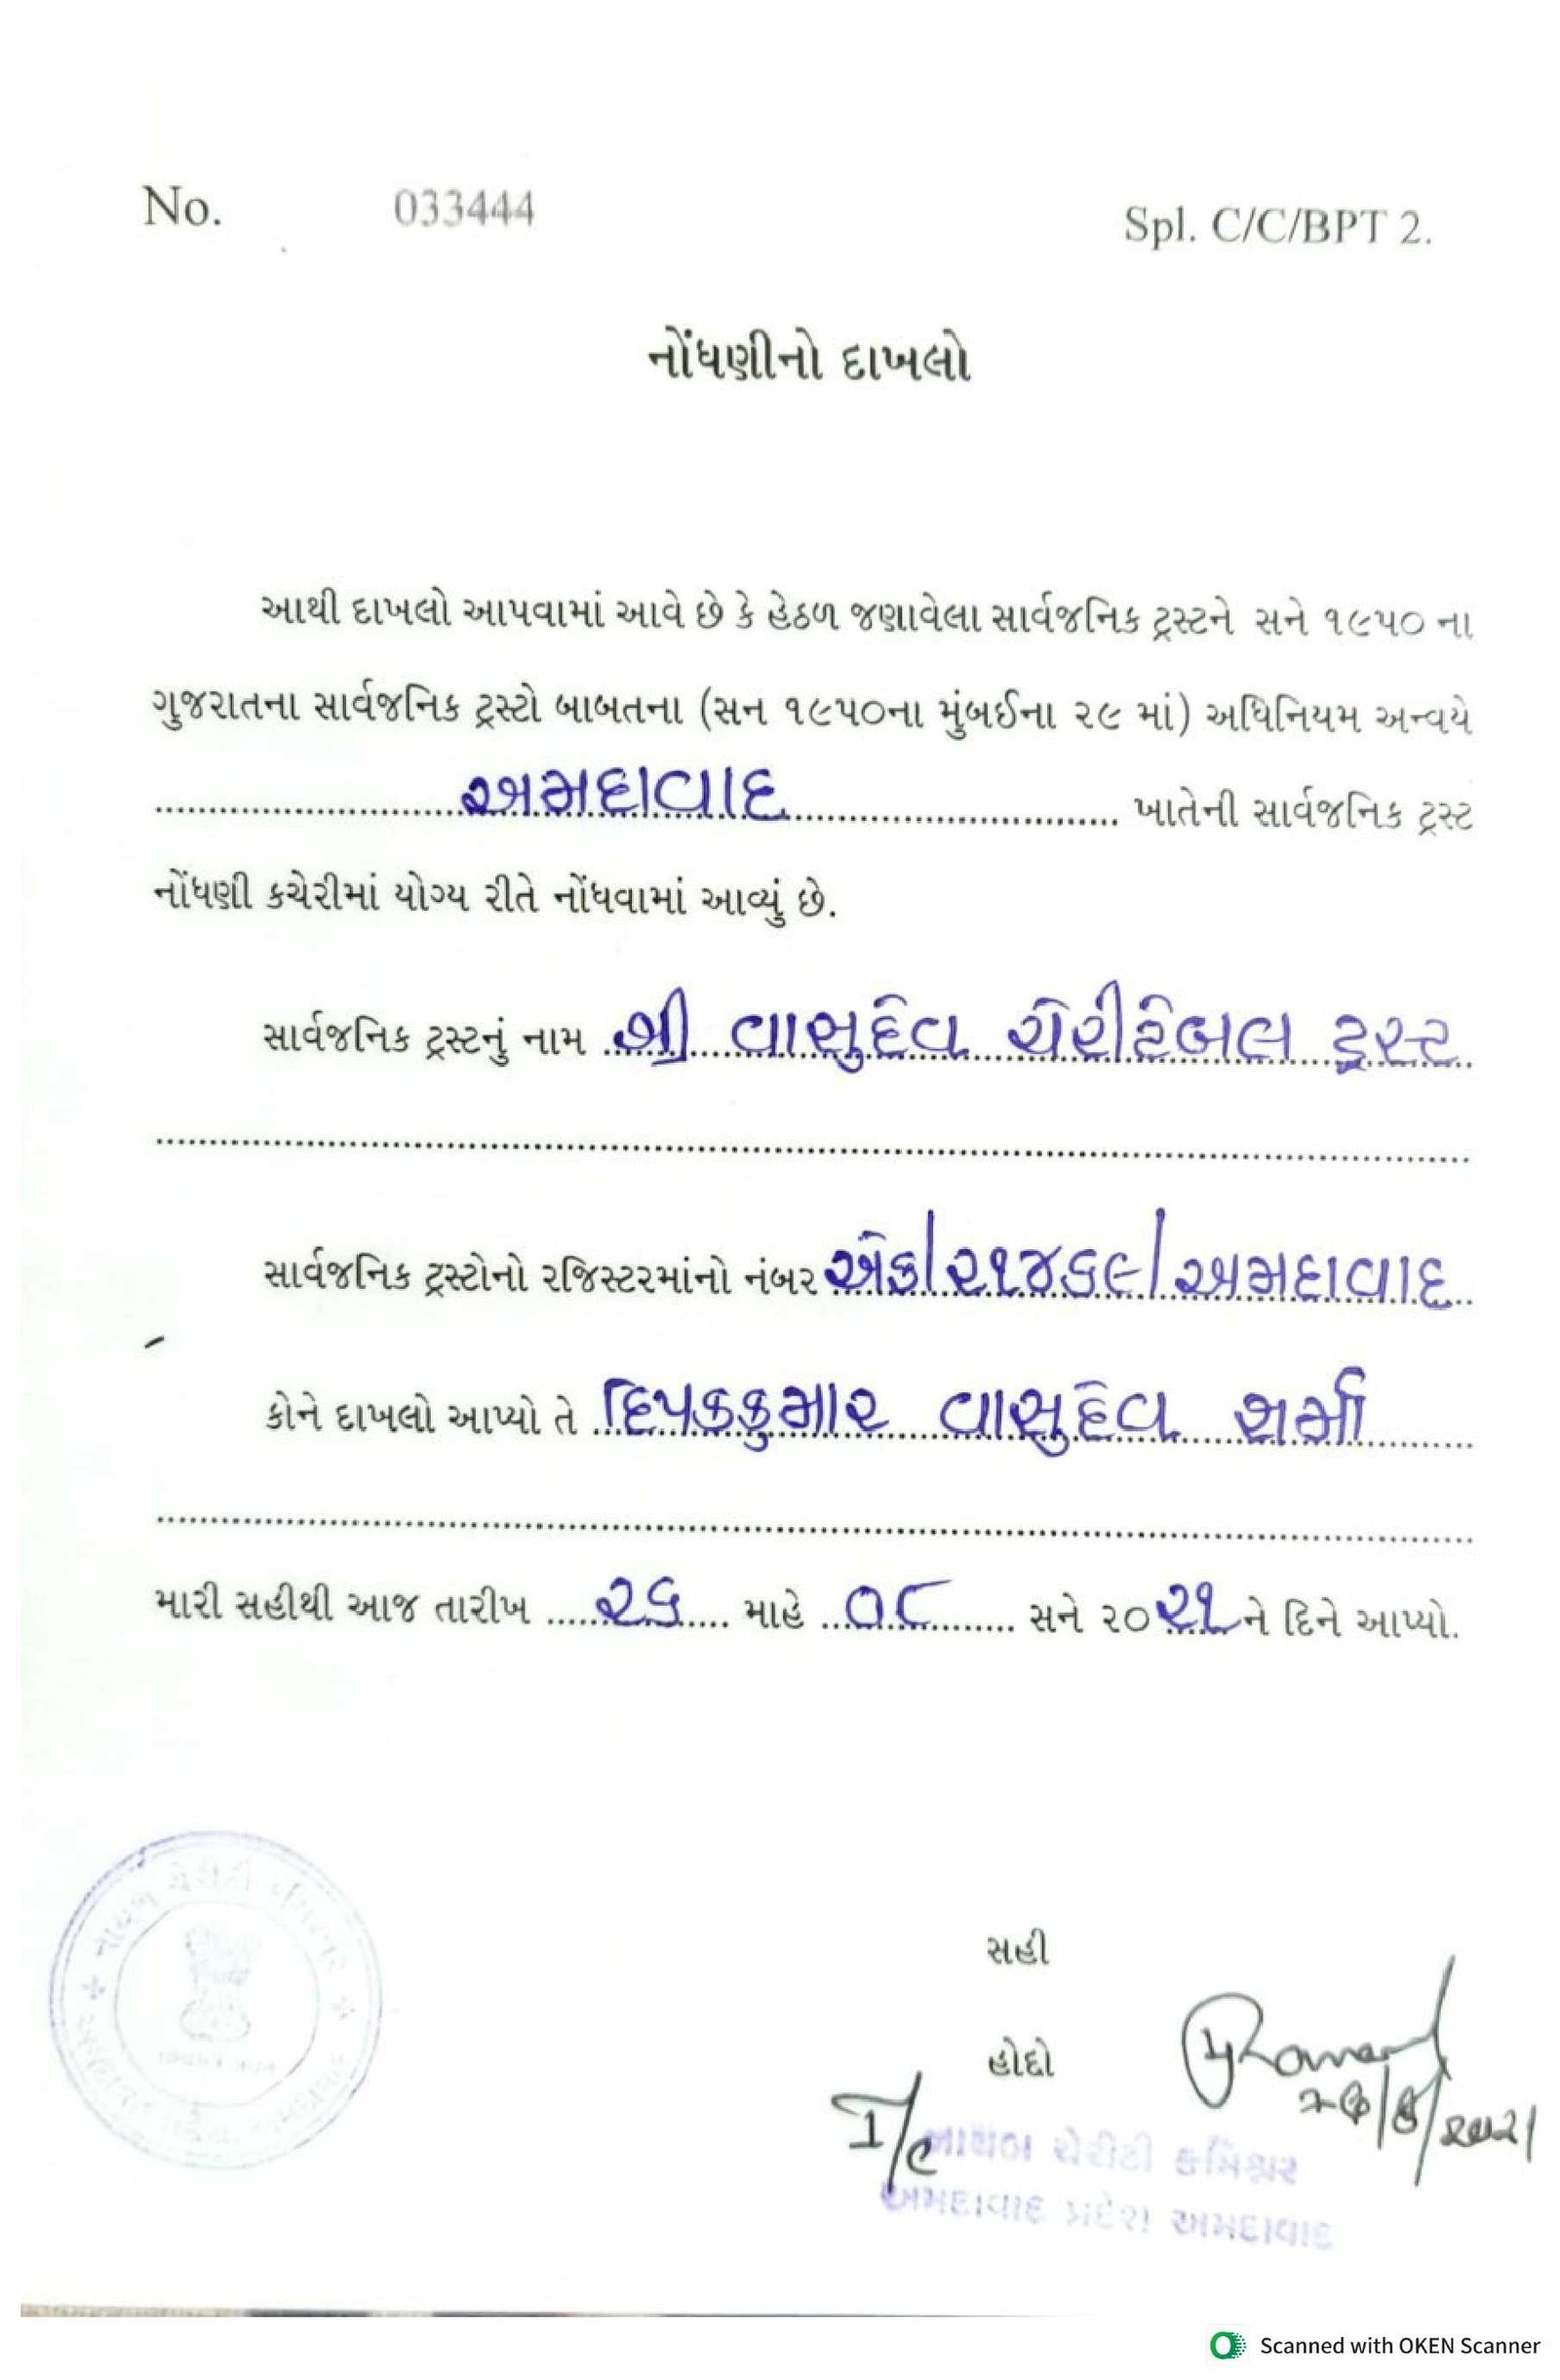 No. 033444 Spl. C/C/BPT 2.
નોંધણીનો દાખલો
આથી દાખલો આપવામાં આવે છે કે હેઠળ જણાવેલા સાર્વજનિક ટ્રસ્ટને સને ૧૯૫૦ ના
ગુજરાતના સાર્વજનિક ટ્રસ્ટો બાબતના (સન ૧૯૫૦ના મુંબઈના ૨૯ માં) અધિનિયમ અન્વયે
અમદાવાદ ખાતેની સાર્વજનિક ટ્રસ્ટ
નોંધણી કચેરીમાં યોગ્ય રીતે નોંધવામાં આવ્યું છે.
સાર્વજનિક ટ્રસ્ટનું નામ શ્રી વાસુદેવ ચેરીટેબલ ટ્રસ્ટ
સાર્વજનિક ટ્રસ્ટોનો રજિસ્ટરમાંનો નંબર એફ/૨૧૪૬૯/અમદાવાદ
કોને દાખલો આપ્યો તે દિપકકુમાર વાસુદેવ શર્મા
મારી સહીથી આજ તારીખ ૨૬ માહે ૦૮ સને ૨૦૨૧ ને દિને આપ્યો.
સહી
હોદ્દો
I/c
Scanned with OKEN Scanner